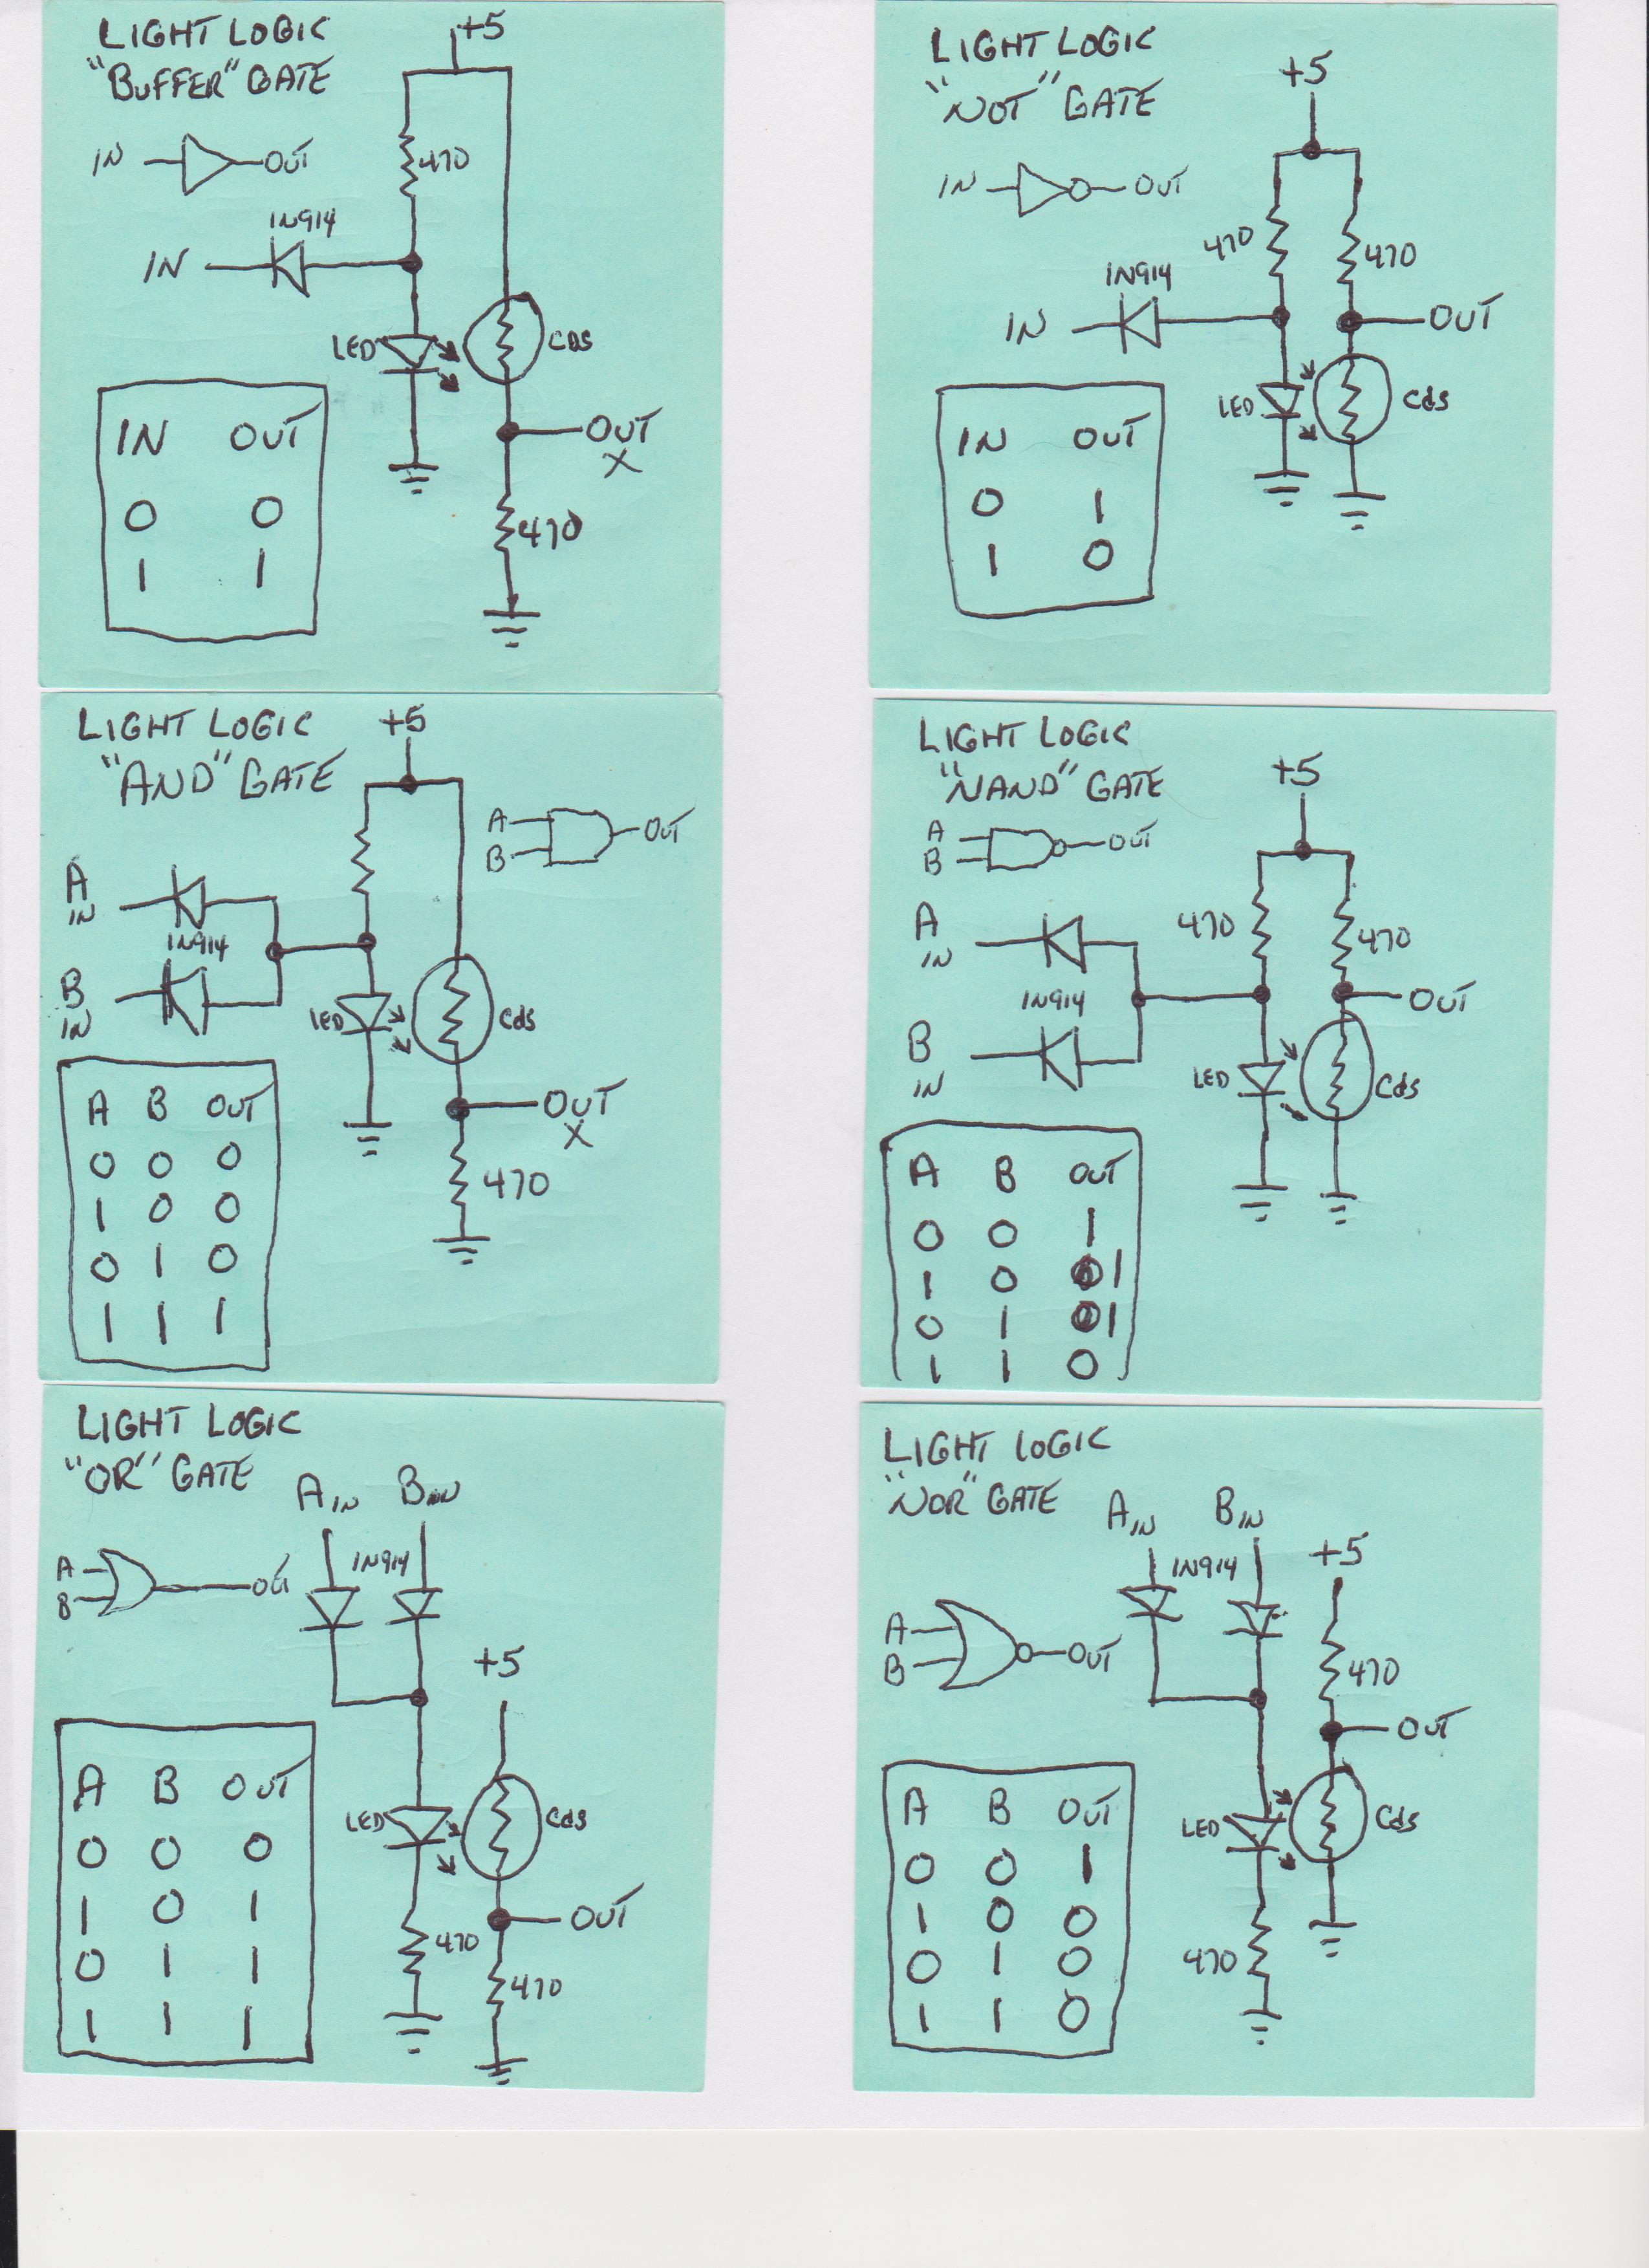 LIGHT LOGIC
"BUFFER" GATE
+5
IN
OUT
470
1N914
IN
LED
CDS
OUT
X
470
IN OUT
0 0
1 1
LIGHT LOGIC
"NOT" GATE
+5
IN
OUT
470
470
1N914
IN
OUT
LED
CdS
IN OUT
0 1
1 0
LIGHT LOGIC
"AND" GATE
+5
A
B
OUT
A
IN
1N914
B
IN
LED
CdS
OUT
X
470
A B OUT
0 0 0
1 0 0
0 1 0
1 1 1
LIGHT LOGIC
"NAND" GATE
+5
A
B
OUT
A
IN
470
470
1N914
OUT
B
IN
LED
CdS
A B OUT
0 0 1
1 0 1
0 1 1
1 1 0
LIGHT LOGIC
"OR" GATE
A IN B IN
A
B
1N914
+5
LED
CdS
OUT
470
470
A B OUT
0 0 0
1 0 1
0 1 1
1 1 1
LIGHT LOGIC
"NOR" GATE
A IN B IN
1N914
+5
A
B
OUT
470
OUT
LED
CdS
470
A B OUT
0 0 1
1 0 0
0 1 0
1 1 0